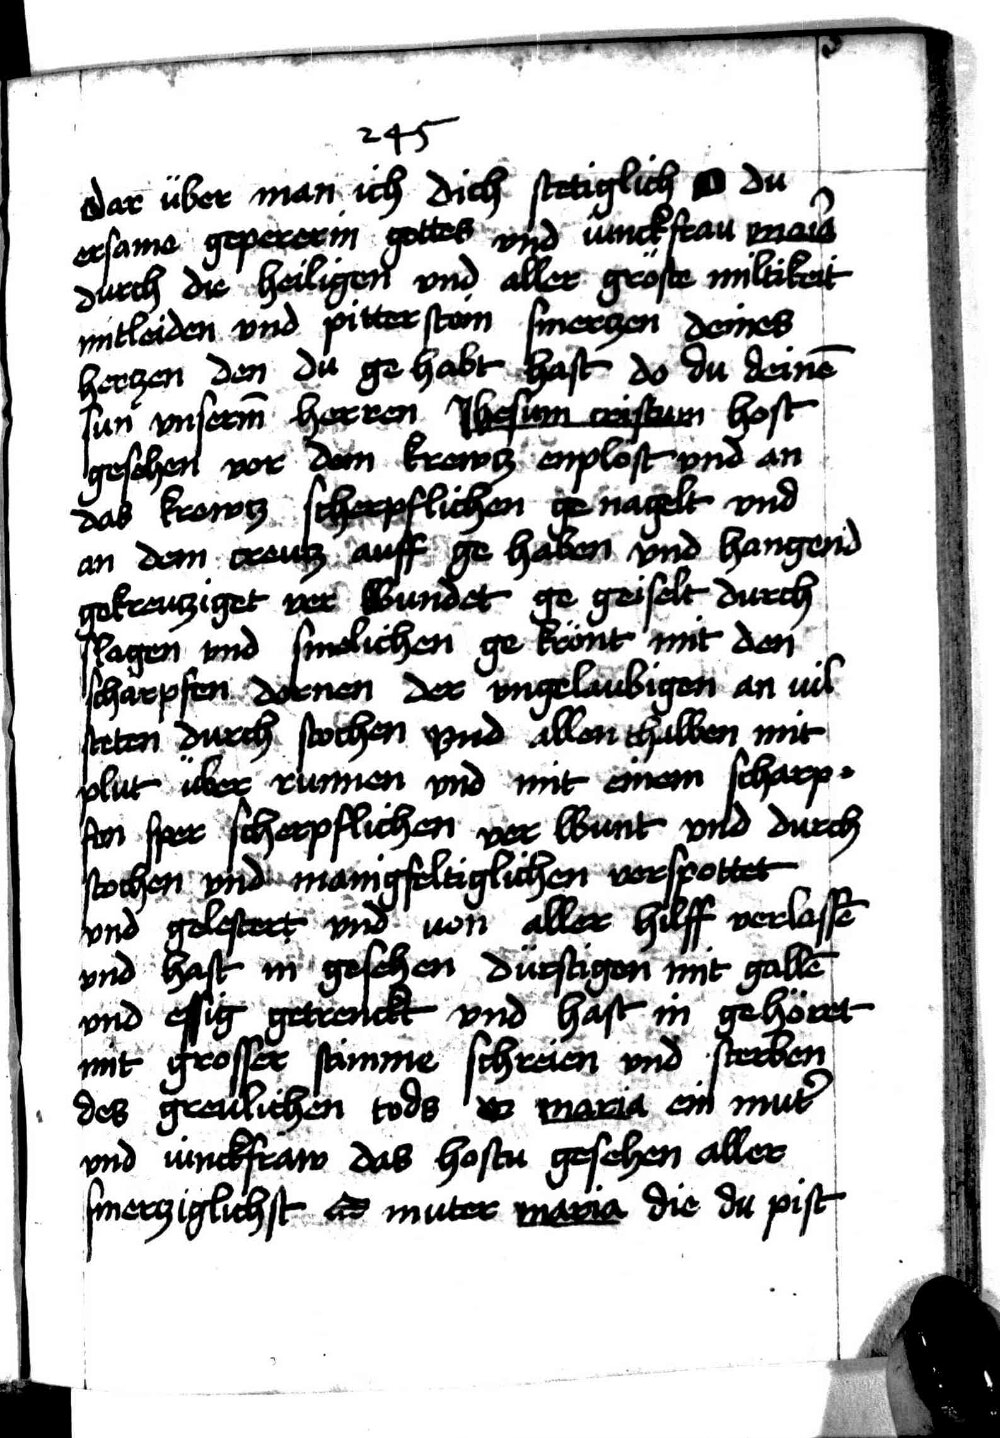 245
Dar über man ich dich stetiglich O du
ersame gepererin gottes vnd iunckfrau maria
durch die heiligen vnd aller gröste miltikeit
mitleiden vnd pitterstom smerczen deines
herczen den du ge habt hast do du deinē
sun vnserm̄ herren Jhesum cristum host
gesehen vor dem krewtz enplost vnd an
das krewtz scherpflichen ge nagelt vnd
an dem creutz auff ge haben vnd hangend
gekreutziget ver wundet ge geiselt durch
slagen vnd smelichen ge krönt mit den
scharpfen dornen der vngelaubigen an uil
steten durch stochen vnd allenthalben mit
plut über runnen vnd mit einem scharp-
fen sper scherpflichen ver wunt vnd durch
stochen vnd manigfeltiglichen verspottet
vnd gelestert vnd uon aller hilff verlossē
vnd hast in gesehen dürstigen mit gallē
vnd essig getrenckt vnd hast in gehöret
mit grosser stimme schreien vnd sterben
des greulichen tods O maria ein mut̉
vnd iunckfraw das hostu gesehen aller
smercziglichst O muter maria die du pist